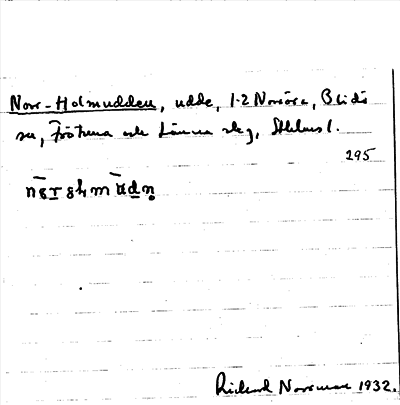 Norr-Holmudden, udde, 1-2 Norröra, Blidö
sn, Frötuna och Länna skg, Sthlms l.
295
Rickard Norrman 1932.